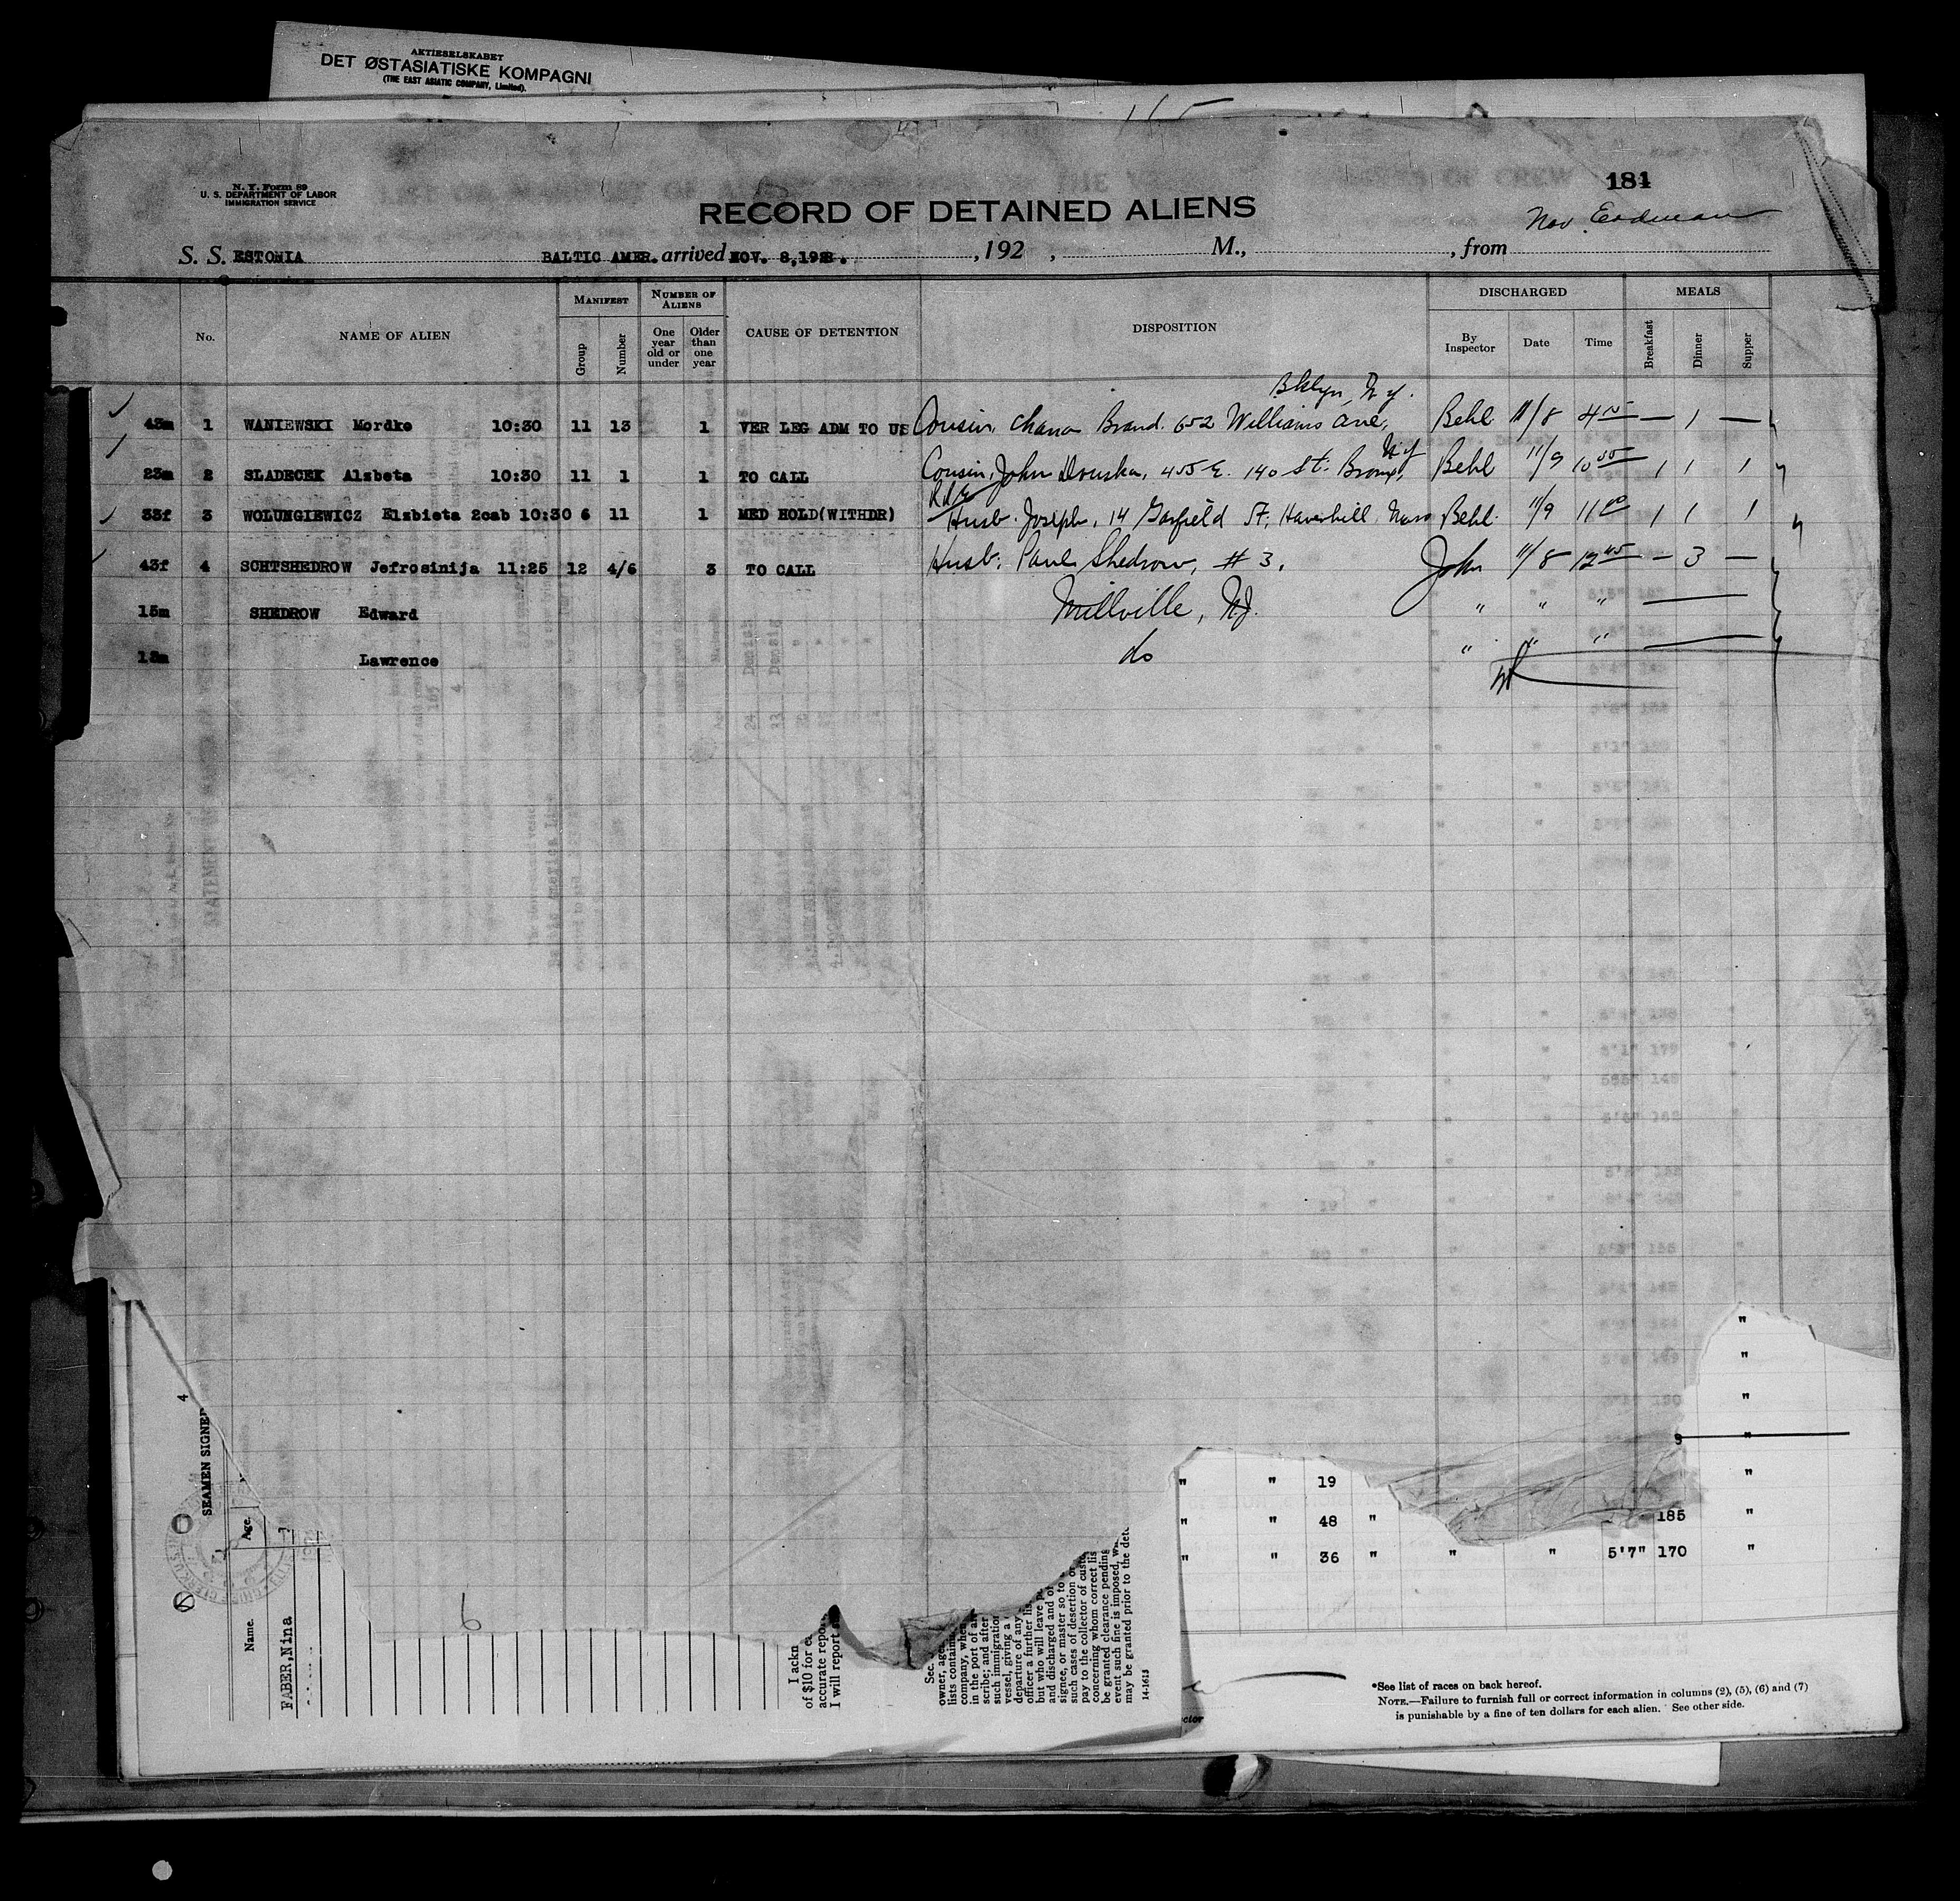 AKTIESELSKABET
DET ØSTASIATISKE KOMPAGNI
(THE EAST ASIATIC COMPANY, Limited).
N. Y. Form 89
U. S. DEPARTMENT OF LABOR
IMMIGRATION SERVICE
181
RECORD OF DETAINED ALIENS
S. S. ESTONIA BALTIC AMER. arrived NOV. 8,1928. ,192 , M., , from
No. NAME OF ALIEN MANIFEST Group Number NUMBER OF ALIENS One year old or under Older than one year CAUSE OF DETENTION DISPOSITION DISCHARGED By Inspector Date Time MEALS Breakfast Dinner Supper
Bklyn, N.Y.
43m 1 WANIEWSKI Mordko 10:30 11 13 1 VER LEG ADM TO US Cousin, Chana Brand. 652 Williams Ave, Behl 11/8 4 15 — 1 —
23m 2 SLADECEK Alzbeta 10:30 11 1 1 TO CALL Cousin, John Douska, 455 E. 140 St. Bronx, N.Y. Behl 11/9 10 55 1 1 1
33f 3 WOLUNGIEWICZ Elzbieta 2cab 10:30 6 11 1 MED HOLD(WITHDR) Husb. Joseph, 14 Garfield St, Haverhill Mass Behl 11/9 11 00 1 1 1
43f 4 SCHTSHEDROW Jefrosinija 11:25 12 4/6 3 TO CALL Husb. Paul Shedrow, #3, John 11/8 12 45 — 3 —
15m SHEDROW Edward Millville, N.J. " " " —
13m Lawrence do " " " —
SEAMEN SIGNED
4
Age.
Name.
FABER,Nina
6
I ackn
of $10 for ea
accurate repor
I will report
Sec.
owner, age
lists contain
company, whe
in the port of
scribe; and after
such immigration
vessel, giving a
departure of any
officer a further lis
but who will leave p
and discharged and of
signee, or master so to
such cases of desertion o
pay to the collector of custo
concerning whom correct lis
be granted clearance pending
event such fine is imposed, w
may be granted prior to the dete
14-1613
" " 19 "
" " 48 " 185 "
" " 36 " " " 5'7" 170 "
ctor
*See list of races on back hereof.
NOTE.—Failure to furnish full or correct information in columns (2), (5), (6) and (7)
is punishable by a fine of ten dollars for each alien. See other side.